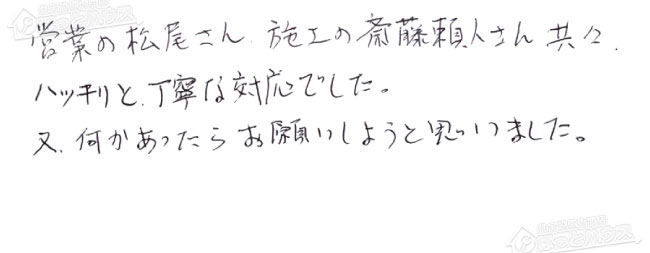 営業の松尾さん、施工の斎藤頼人さん共々、
ハッキリと、丁寧な対応でした。
又、何かあったらお願いしようと思いました。